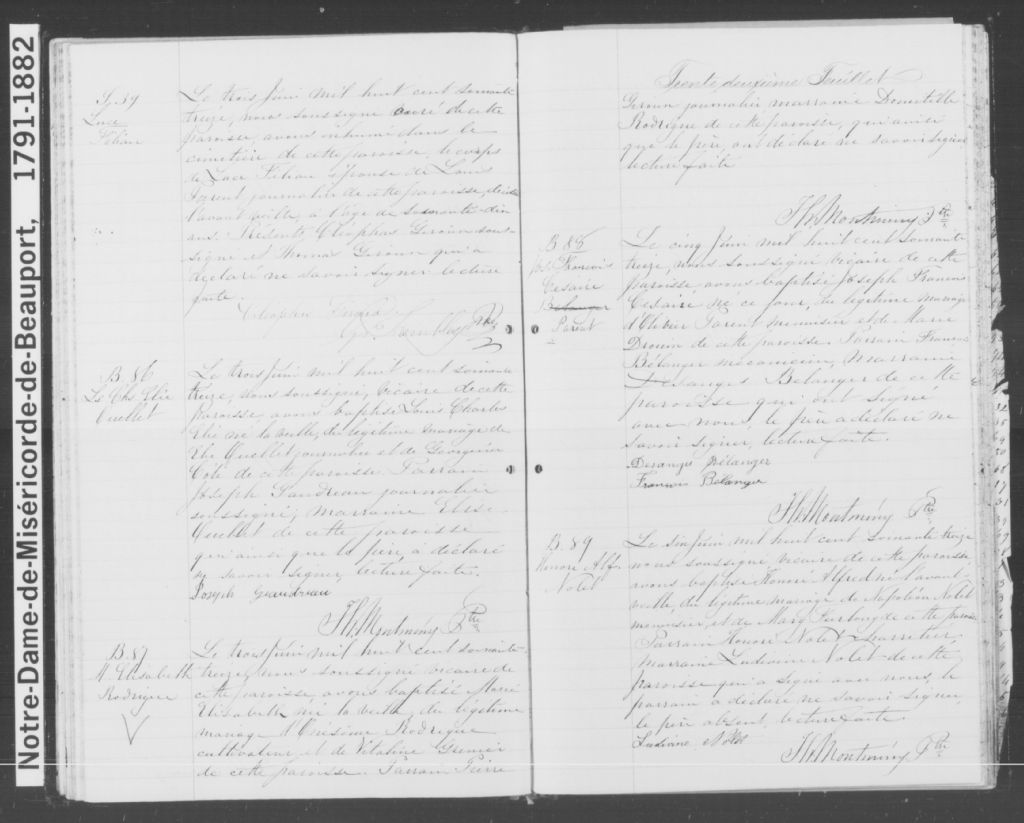 Notre-Dame-de-Miséricorde-de-Beauport, 1791-1882
S. 39
Luce
Le trois Juin mil huit cent soixante
treize, nous soussigné curé de cette
paroisse, avons inhumé dans le
cimetière de cette paroisse, le corps
de Luce épouse de Louis
journalier de cette paroisse, décédée
l'avant veille, à l'âge de soixante-dix
ans. Présents, Cléophas Giroux sous-
signé et Thomas Giroux qui a
déclaré ne savoir signer lecture
faite.
Cléophas
Tremblay Ptre
B. 86
Ls Chs Elie
Ouellet
Le trois Juin mil huit cent soixante
treize, nous soussigné, vicaire de cette
paroisse avons baptisé Louis Charles
Elie né la veille, du légitime mariage de
Elie Ouellet journalier et de Georgina
Côté de cette paroisse. Parrain
Joseph journalier
soussigné; marraine Elise
Ouellet de cette paroisse
qui ainsi que le père, a déclaré
ne savoir signer, lecture faite.
Joseph
Th. Montminy Ptre
B. 87
M. Elisabeth
Rodrigue
Le trois Juin mil huit cent soixante-
treize, nous soussigné vicaire de
cette paroisse, avons baptisé Marie
Elisabeth née la veille, du légitime
mariage d'Onésime Rodrigue
cultivateur et de Vitaline Grenier
de cette paroisse. Parrain Pierre
Trente deuxième Feuillet
Giroux journalier marraine Domitille
Rodrigue de cette paroisse, qui ainsi
que le père, ont déclaré ne savoir signer
lecture faite
Th. Montminy Ptre
B. 88
Jos. François
Césaire
Bélanger
Parent
Le cinq Juin mil huit cent soixante
treize, nous soussigné vicaire de cette
paroisse avons baptisé Joseph François
Césaire né ce jour, du légitime mariage
d'Olivier Parent menuisier et de Marie
Drouin de cette paroisse. Parrain François
Bélanger mécanicien, Marraine
Desanges Bélanger de cette
paroisse qui ont signé
avec nous, le père a déclaré ne
savoir signer, lecture faite.
Desanges Bélanger
François Bélanger
Th. Montminy Ptre
B. 89
Honoré Alfr.
Nolet
Le six Juin mil huit cent soixante treize
nous soussigné, vicaire de cette paroisse
avons baptisé Honoré Alfred né l'avant-
veille, du légitime mariage de Napoléon Nolet
menuisier et de Mary Furlong de cette paroisse
Parrain Honoré Nolet charretier,
marraine Ludivine Nolet de cette
paroisse qui a signé avec nous, le
parrain a déclaré ne savoir signer,
le père absent, lecture faite.
Ludivine Nolet
Th. Montminy Ptre